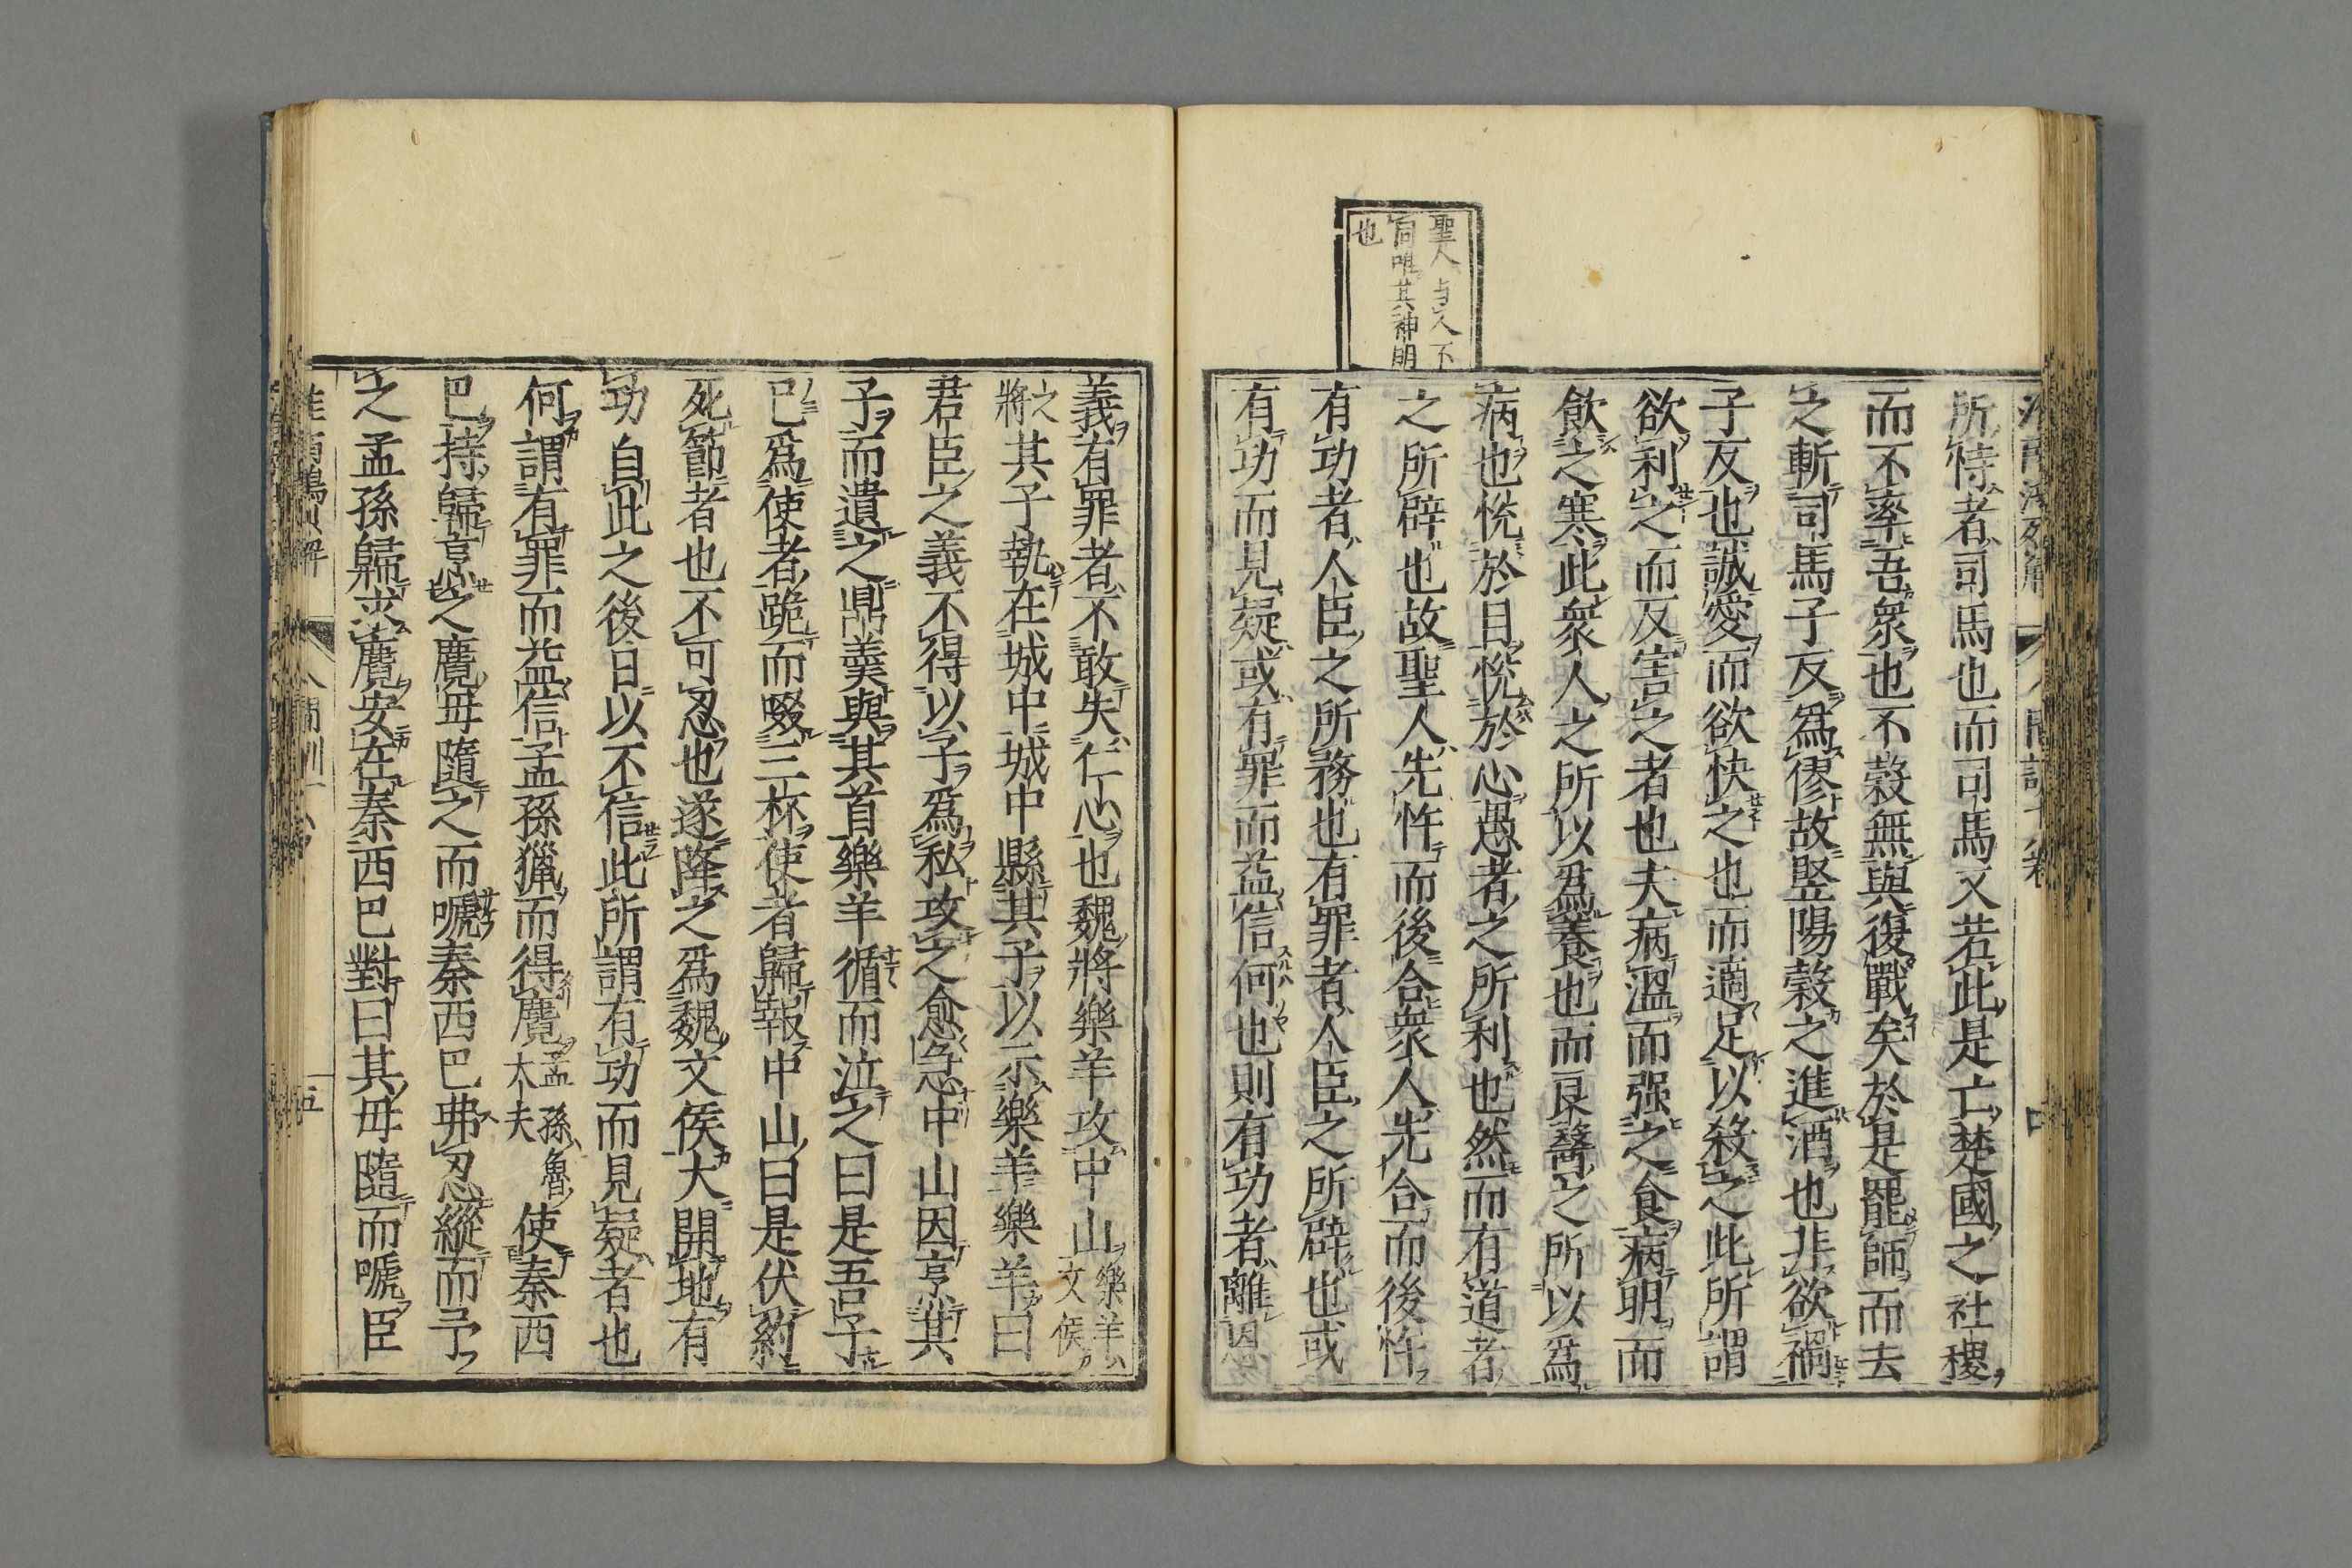 聖人与人不
同唯其神明
也
所恃者司馬也而司馬又若此是亡楚國之社稷
而不率吾衆也不穀無與復戰矣於是罷師而去
之斬司馬子反爲僇故豎陽穀之進酒也非欲禍
子反也誠愛而欲快之也而適足以殺之此所謂
欲利之而反害之者也夫病溫而强之食病暍而
飲之寒此衆人之所以爲養也而良醫之所以爲
病也悅於目悅於心愚者之所利也然而有道者
之所辟也故聖人先忤而後合衆人先合而後忤
有功者人臣之所務也有罪者人臣之所辟也或
有功而見疑或有罪而益信何也則有功者離恩
義有罪者不敢失仁心也魏將樂羊攻中山樂羊文侯
之將其子執在城中城中縣其子以示樂羊樂羊曰
君臣之義不得以子爲私攻之愈急中山因烹其
子而遺之鼎羹與其首樂羊循而泣之曰是吾子
已爲使者跪而啜三杯使者歸報中山曰是伏約
死節者也不可忍也遂降之爲魏文侯大開地有
功自此之後日以不信此所謂有功而見疑者也
何謂有罪而益信孟孫獵而得麑孟孫魯大夫使秦西
巴持歸烹之麑母隨之而嗁秦西巴弗忍縱而予
之孟孫歸求麑安在秦西巴對曰其母隨而嗁臣
人間訓
五